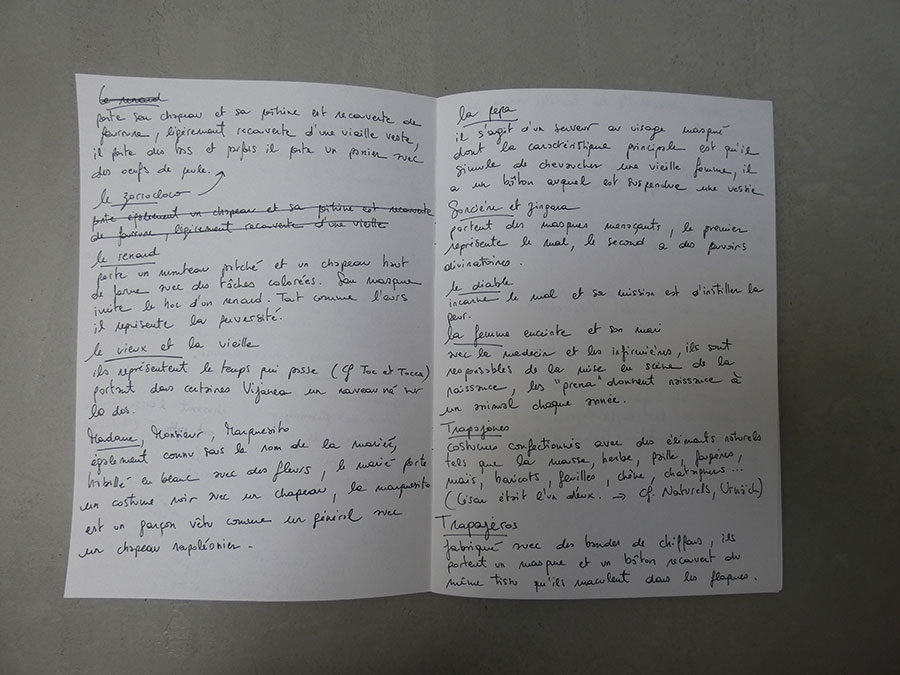 le renard
porte son chapeau et sa poitrine est recouverte de
fourrure, ligèrement recouverte d'une vieille veste,
il porte des bas et parfois il porte un panier avec
des oeufs de poule.
le zorrocloco
porte également un chapeau et sa poitrine est recouverte
de fourrure, ligèrement recouverte d'une vieille
le renard
porte un manteau et un chapeau haut
de forme avec des tâches colorées. Son masque
imite le d'un renard. Tout comme l'ours
il représente la perversité.
le vieux et la vieille
ils représentent le temps qui passe (cf
portant dans certaines Vijanea un nouveau né sur
le dos.
Madame, Monsieur, Marquesito
également connu sous le nom de la mariée,
habillé en blanc avec des fleurs, le marié porte
un costume noir avec un chapeau, la marquesito
est un garçon vêtu comme un général avec
un chapeau napoléonien.
la pepa
il s'agit d'un serveur au visage masqué
dont la caractéristique principale est qu'il
simule de chevaucher une vieille femme, il
a un bâton auquel est suspendue une vessie
Sorcière et Zingara
portent des masques menaçants, le premier
représente le mal, le second a des pouvoirs
divinatoires.
le diable
incarne le mal et sa mission est d'instiller la
peur.
la femme enceinte et son mari
avec la medecin et les infirmières, ils sont
responsables de la mise en scène de la
naissance, les "prena" donnent naissance à
un animal chaque année.
Trapajones
costumes confectionnés avec des éléments naturels
tels que la mousse, herbe, paille, fougères,
maïs, haricots, feuilles, chêne, chataigniers...
(César était l'un d'eux. → Cf. Naturels,
Trapajeros
fabriqué avec des bandes de chiffons, ils
portent un masque et un bâton recouvert du
même tissu qu'ils maculent dans les flaques.